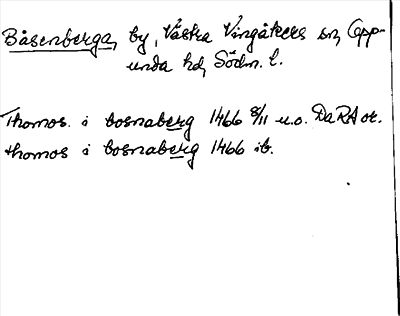 Båsenberga, by, Västra Vingåkers sn, Opp-
unda hd, Södm. l.
Thomos i bosnaberg 1466 8/11 u.o. Da RA or.
thomos i bosnaberg 1466 ib.